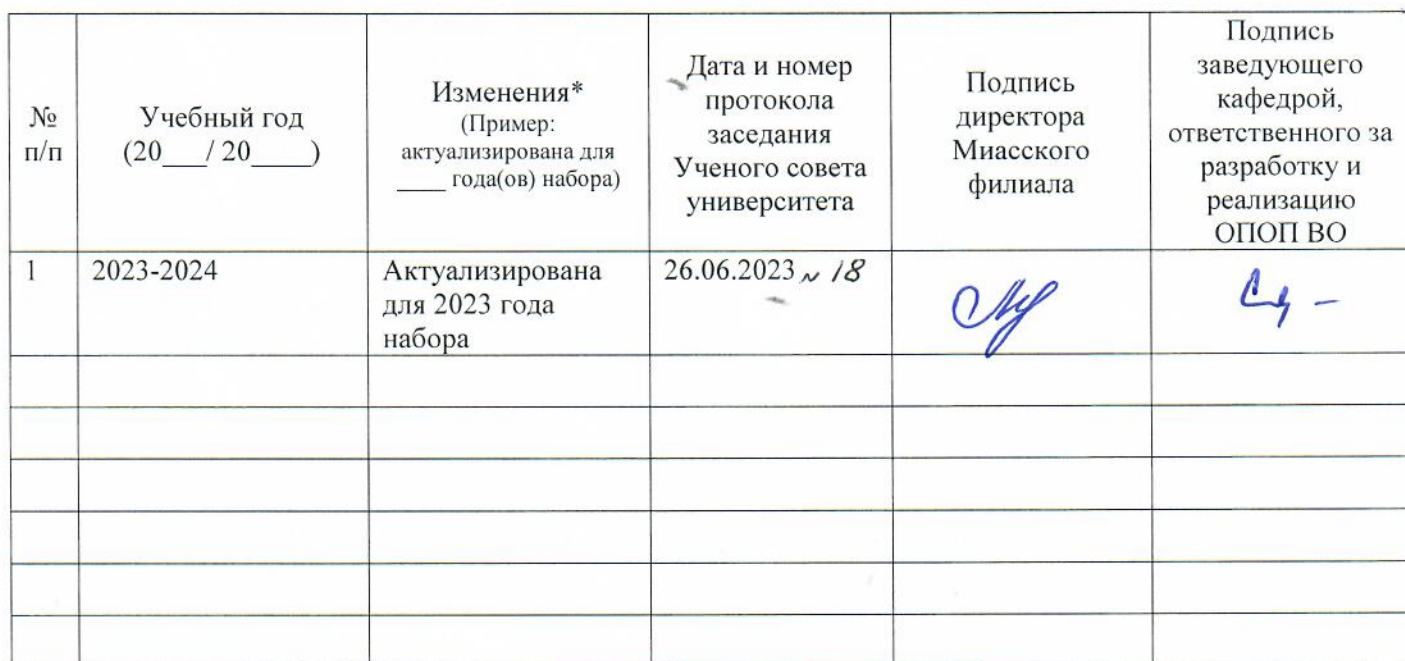 №
п/п
Учебный год
(20___/ 20____)
Изменения*
(Пример:
актуализирована для
____ года(ов) набора)
Дата и номер
протокола
заседания
Ученого совета
университета
Подпись
директора
Миасского
филиала
Подпись
заведующего
кафедрой,
ответственного за
разработку и
реализацию
ОПОП ВО
1
2023-2024
Актуализирована
для 2023 года
набора
26.06.2023 № 18